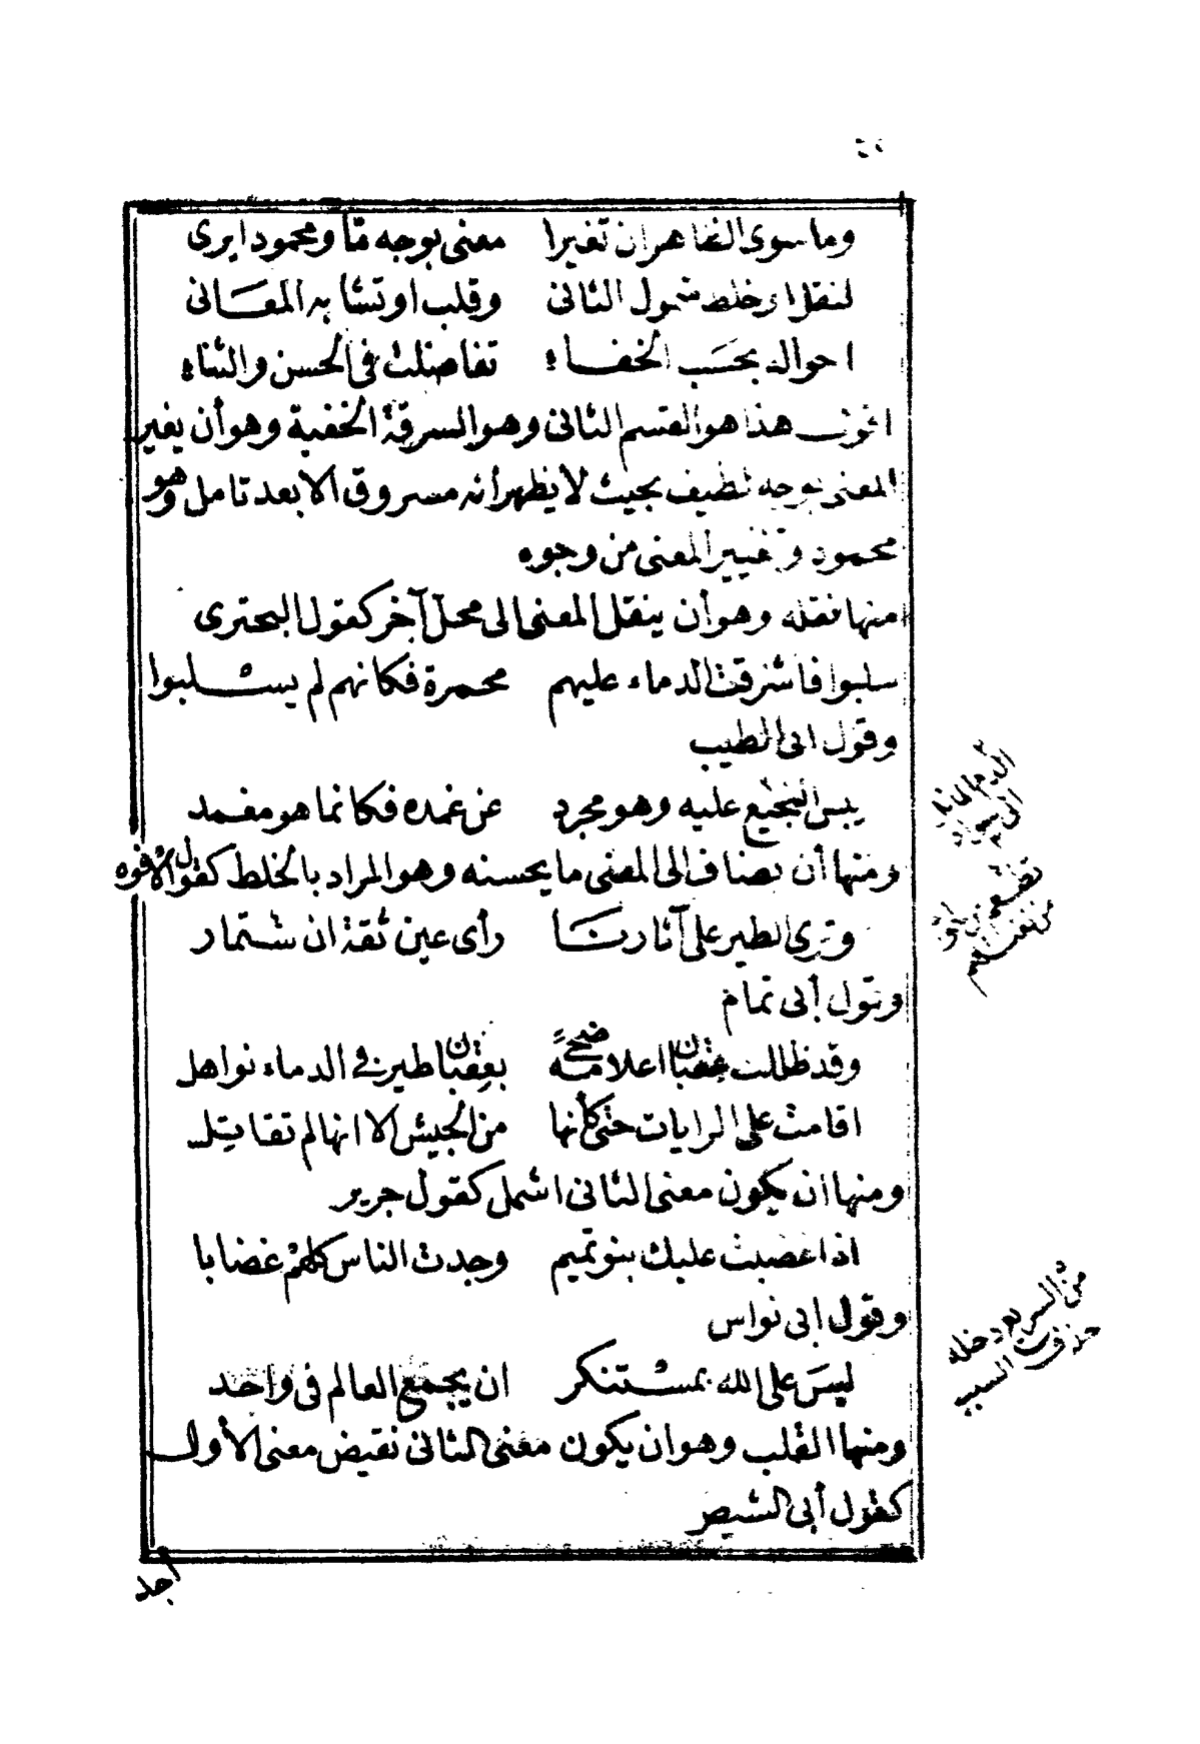 وما سوى الظاهر ان تغيرا معنى بوجه مّا ومحمودا يرى
لنقل او خلط شمول الثانى وقلب او تشابه المعَانى
احواله بحَسَب الخفاء تفاضلت فى الحسن والثناء
اقول هذا هو القسم الثانى وهو السرقة الخفية وهو أن يغير
المعنى بوجه لطيف بحيث لا يظهر أنه مسروق الا بعد تامل وهو
محمود وتغيير المعنى من وجوه
منها نقله وهو أن ينقل المعنى الى محل آخر كقول البحترى
سلبوا فاشرقت الدماء عليهم محمرة فكانهم لم يسلبوا
وقول ابى الطيب
يبس النجيع عليه وهو مجرد عن غمده فكانما هو مغمد
ومنها أن يضاف الى المعنى ما يحسنه وهو المراد بالخلط كقول الأفوه
وترى الطير على آثارنا رأى عين ثقة ان ستمار
وقول أبى تمام
وقد ظللت عقبان اعلامه ضحًى بعقبان طير فى الدماء نواهل
اقامت على الرايات حتى كأنها من الجيش الا انها لم تقاتل
ومنها ان يكون معنى الثانى اشمل كقول جرير
اذا غضبت عليك بنو تميم وجدت الناس كلهمْ غضابا
وقول ابى نواس
ليسَ على الله بمستنكر ان يجمع العالم فى واحد
ومنها القلب وهو ان يكون معنى الثانى نقيض معنى الأول
كقول أبى الشيص
أجد
الدم المائل
الى السواد
من السريع دخله
حذف السبب